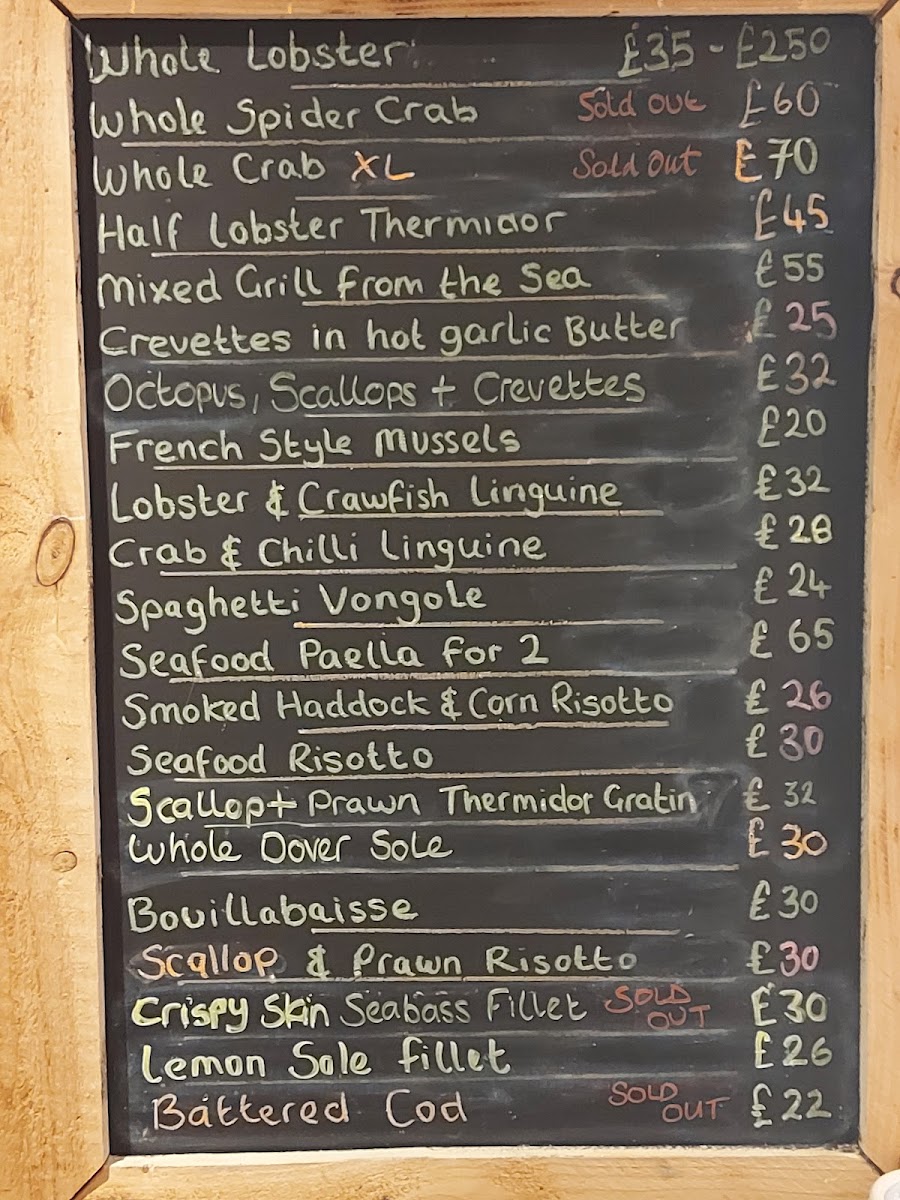 Whole Lobster £35 - £250
Whole Spider Crab Sold Out £60
Whole Crab XL Sold Out £70
Half Lobster Thermidor £45
Mixed Grill from the Sea £55
Crevettes in hot garlic Butter £25
Octopus, Scallops + Crevettes £32
French Style Mussels £20
Lobster & Crawfish Linguine £32
Crab & Chilli Linguine £28
Spaghetti Vongole £24
Seafood Paella for 2 £65
Smoked Haddock & Corn Risotto £26
Seafood Risotto £30
Scallop + Prawn Thermidor Gratin £32
Whole Dover Sole £30
Bouillabaisse £30
Scallop & Prawn Risotto £30
Crispy Skin Seabass Fillet SOLD OUT £30
Lemon Sole fillet £26
Battered Cod SOLD OUT £22